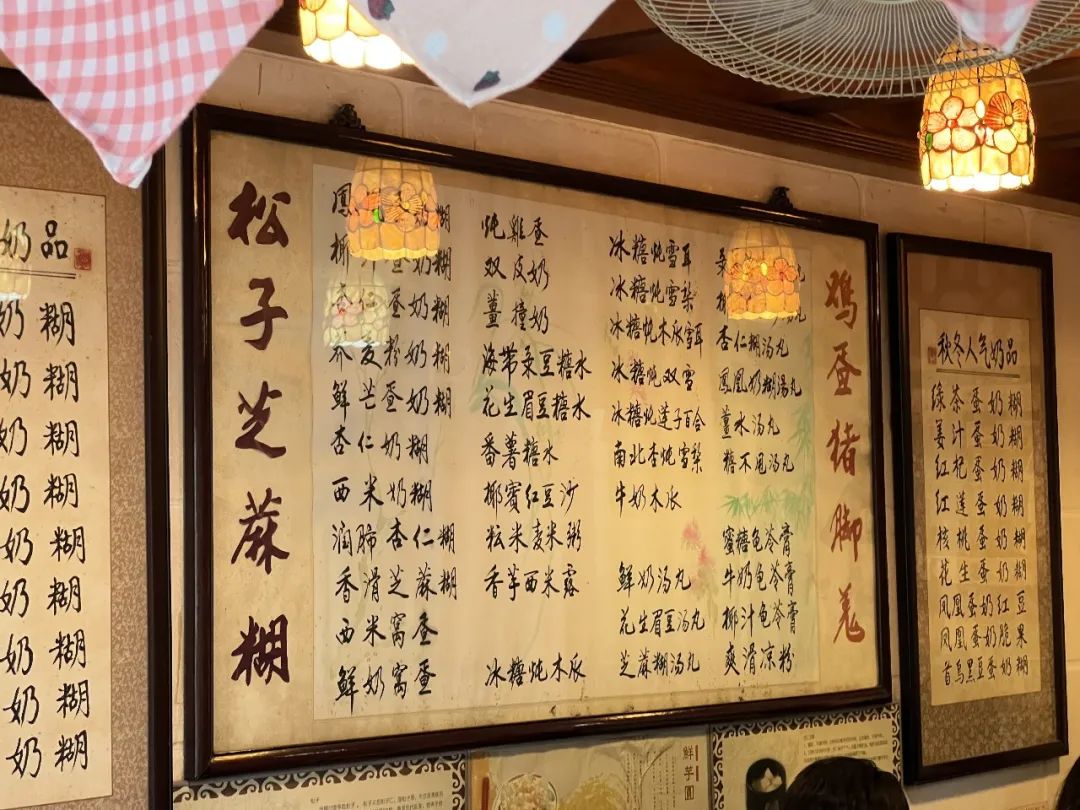 奶品
奶糊
奶糊
奶糊
奶糊
奶糊
奶糊
奶糊
奶糊
奶糊
松子芝蔴糊
鳳 糊
椰 蛋奶糊
杏仁蛋奶糊
荞麦粉奶糊
鲜芒蛋奶糊
杏仁奶糊
西米奶糊
润肺杏仁糊
香滑芝蔴糊
西米窝蛋
鲜奶窝蛋
炖雞蛋
双皮奶
薑撞奶
海带菉豆糖水
花生眉豆糖水
番薯糖水
椰賓红豆沙
粘米麦米粥
香芋西米露
冰糖炖木瓜
冰糖炖雪耳
冰糖炖雪梨
冰糖炖木瓜雪耳
冰糖炖双雪
冰糖炖莲子百合
南北杏炖雪梨
牛奶木瓜
鲜奶汤丸
花生眉豆汤丸
芝蔴糊汤丸
菉 丸
椰 汤丸
杏仁糊汤丸
鳳凰奶糊汤丸
薑水汤丸
糖不甩汤丸
蜜糖龟苓膏
牛奶龟苓膏
椰汁龟苓膏
爽滑凉粉
鸡蛋猪脚羌
秋冬人气奶品
绿茶蛋奶糊
姜汁蛋奶糊
红杞蛋奶糊
红莲蛋奶糊
核桃蛋奶糊
花生蛋奶糊
凤凰蛋奶红豆
凤凰蛋奶脆果
首乌黑豆蛋奶糊
鮮芋圓